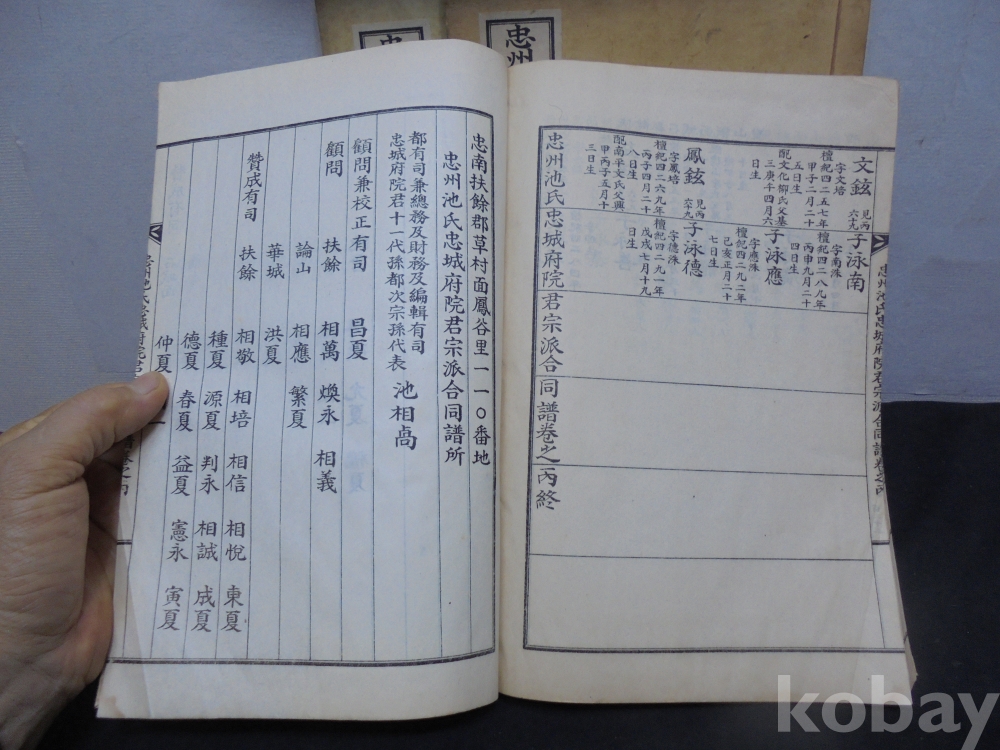 忠州
忠
文鉉 見丙
六九
字文培
檀紀四二五七年
甲子二月二十
五日生
配文化柳氏父基
三庚午四月六
日生
子泳南
字南洙
檀紀四二八九年
丙申九月二十
四日生
子泳應
字應洙
檀紀四二九二年
己亥正月二十
七日生
鳳鉉 見丙
六十九
字鳳培
檀紀四二六九年
丙子四月二十
八日生
配南平文氏父興
甲丙子五月十
三日生
子泳德
字德洙
檀紀四二九一年
戊戌七月十九
日生
忠州池氏忠城府院君宗派合同譜卷之丙終
忠州池氏忠城府院君宗派合同譜卷之丙
忠南扶餘郡草村面鳳谷里一一〇番地
忠州池氏忠城府院君宗派合同譜所
都有司兼總務及財務及編輯有司
忠城府院君十一代孫都次宗孫代表 池相卨
顧問兼校正有司 昌夏
顧問 扶餘 相萬 煥永 相義
論山 相應 繁夏
華城 洪夏
贊成有司 扶餘 相敬 相培 相信 相悅 東夏
種夏 源夏 判永 相誠 成夏
德夏 春夏 益夏 憲永 寅夏
仲夏
忠州池氏忠城府院君
譜卷之丙
一
kobay